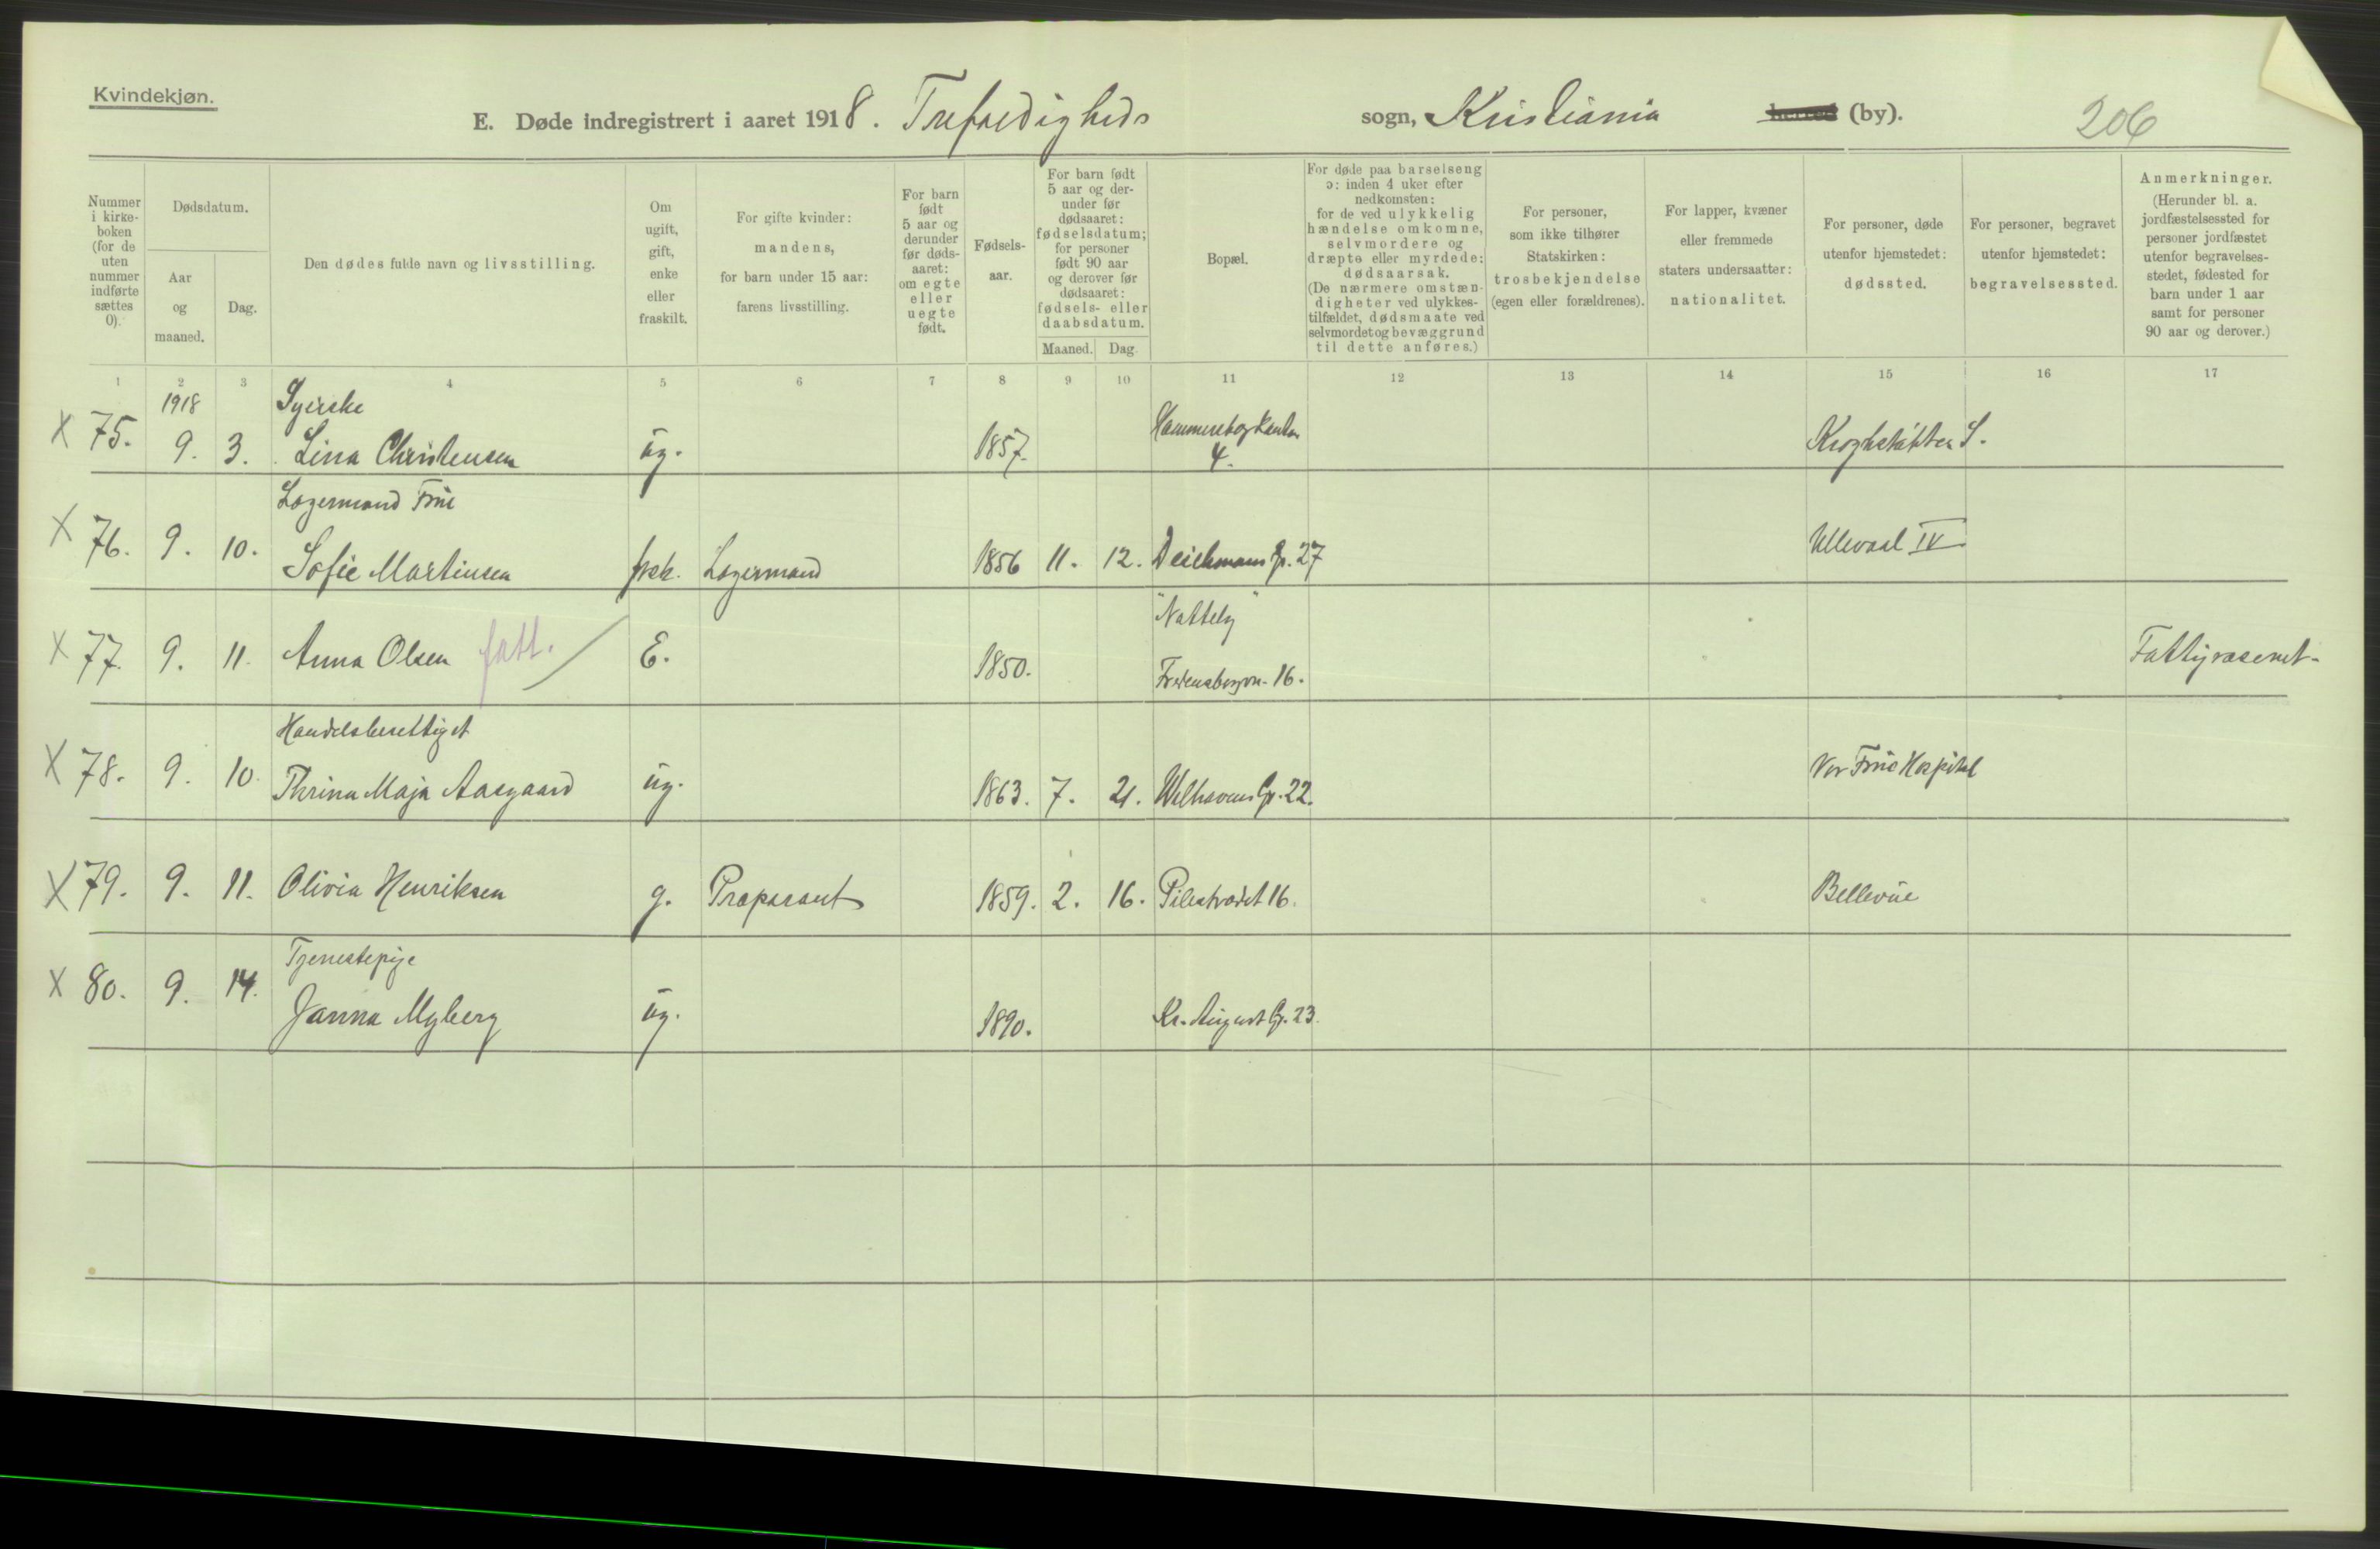 Kvindekjøn.
E. Døde indregistrert i aaret 1918. Trefoldigheds sogn, Kristiania herred (by).
206
Nummer i kirkeboken (for de uten nummer indførte sættes 0).
Dødsdatum.
Aar og maaned.
Dag.
Den dødes fulde navn og livsstilling.
Om ugift, gift, enke eller fraskilt.
For gifte kvinder: mandens, for barn under 15 aar: farens livsstilling.
For barn født 5 aar og derunder før dødsaaret: om egte eller uegte født.
Fødselsaar.
For barn født 5 aar og derunder før dødsaaret: fødselsdatum; for personer født 90 aar og derover før dødsaaret: fødsels- eller daabsdatum.
Maaned. Dag.
Bopæl.
For døde paa barselseng ɔ: inden 4 uker efter nedkomsten: for de ved ulykkelig hændelse omkomne, selvmordere og dræpte eller myrdede: dødsaarsak. (De nærmere omstændigheter ved ulykkestilfældet, dødsmaate ved selvmordet og bevæggrund til dette anføres.)
For personer, som ikke tilhører Statskirken: trosbekjendelse (egen eller forældrenes).
For lapper, kvæner eller fremmede staters undersaatter: nationalitet.
For personer, døde utenfor hjemstedet: dødssted.
For personer, begravet utenfor hjemstedet: begravelsessted.
Anmerkninger. (Herunder bl. a. jordfæstelsessted for personer jordfæstet utenfor begravelsesstedet, fødested for barn under 1 aar samt for personer 90 aar og derover.)
1 2 3 4 5 6 7 8 9 10 11 12 13 14 15 16 17
1918 Syerske
X 75. 9. 3. Lina Christensen ug. 1857. 4. Kroghstøtten S.
Lagermand Frue
X 76. 9. 10. Sofie Martinsen frsk. Lagermand 1856 11. 12. Deichmans G. 27 Ullevaal IV
"Nattely"
X 77. 9. 11. Anna Olsen fatt. E. 1850. Fredensborgvn. 16. Fattigvæsenet.
Handelsberettiget
X 78. 9. 10. Thrina Maja Aasgaard ug. 1863. 7. 21. Welhavens G. 22. Vor Frue Hospital
X 79. 9. 11. Olivia Henriksen g. Præparant 1859. 2. 16. Pilestrædet 16. Bellevue
Tjenestepige
X 80. 9. 14. Janna Myberg ug. 1890. Kr. August G. 23.